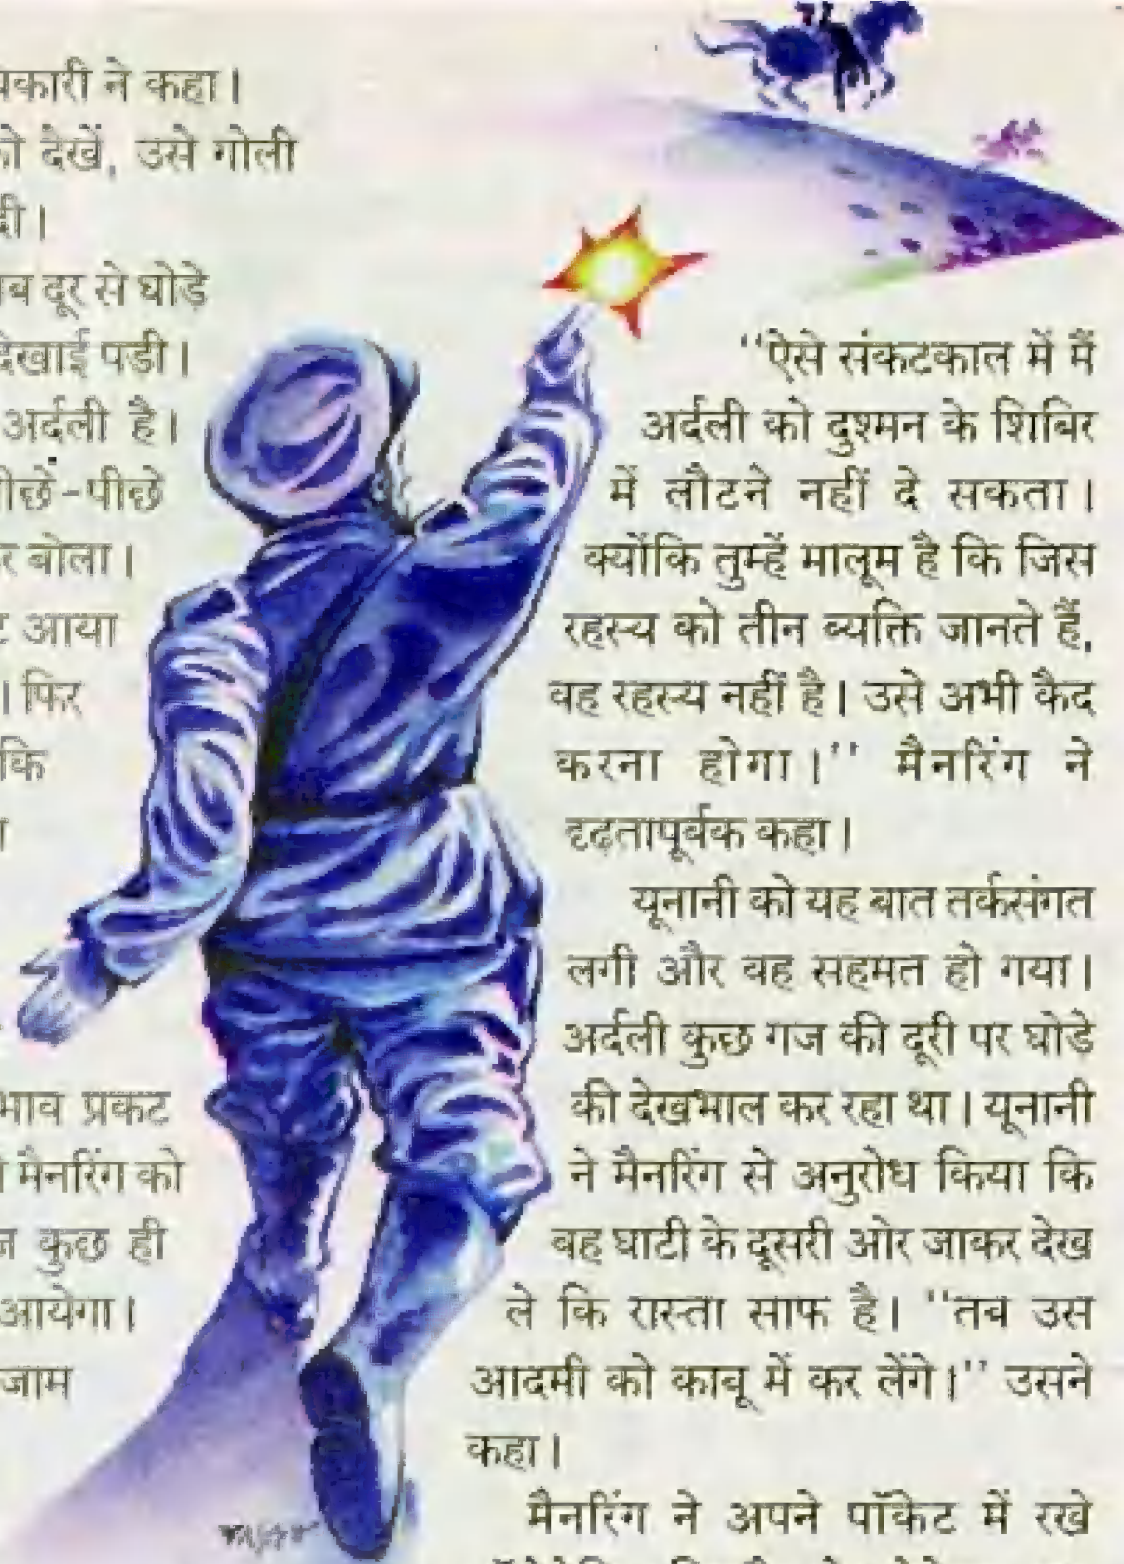 ने कहा।
देखें, उसे गोली
दूर से घोड़े
पडी।
अर्दली है।
बोला।
आया
। फिर
कि
प्रकट
मैनरिंग को
कुछ ही
आयेगा।
‘‘ऐसे संकटकाल में मैं
अर्दली को दुश्मन के शिबिर
में लौटने नहीं दे सकता।
क्योंकि तुम्हें मालूम है कि जिस
रहस्य को तीन व्यक्ति जानते हैं,
वह रहस्य नहीं है। उसे अभी कैद
करना होगा।’’ मैनरिंग ने
दृढ़तापूर्वक कहा।
यूनानी को यह बात तर्कसंगत
लगी और वह सहमत हो गया।
अर्दली कुछ गज की दूरी पर घोडे
की देखभाल कर रहा था। यूनानी
ने मैनरिंग से अनुरोध किया कि
वह घाटी के दूसरी ओर जाकर देख
ले कि रास्ता साफ है। ‘‘तब उस
आदमी को काबू में कर लेंगे।’’ उसने
कहा।
मैनरिंग ने अपने पॉकेट में रखे